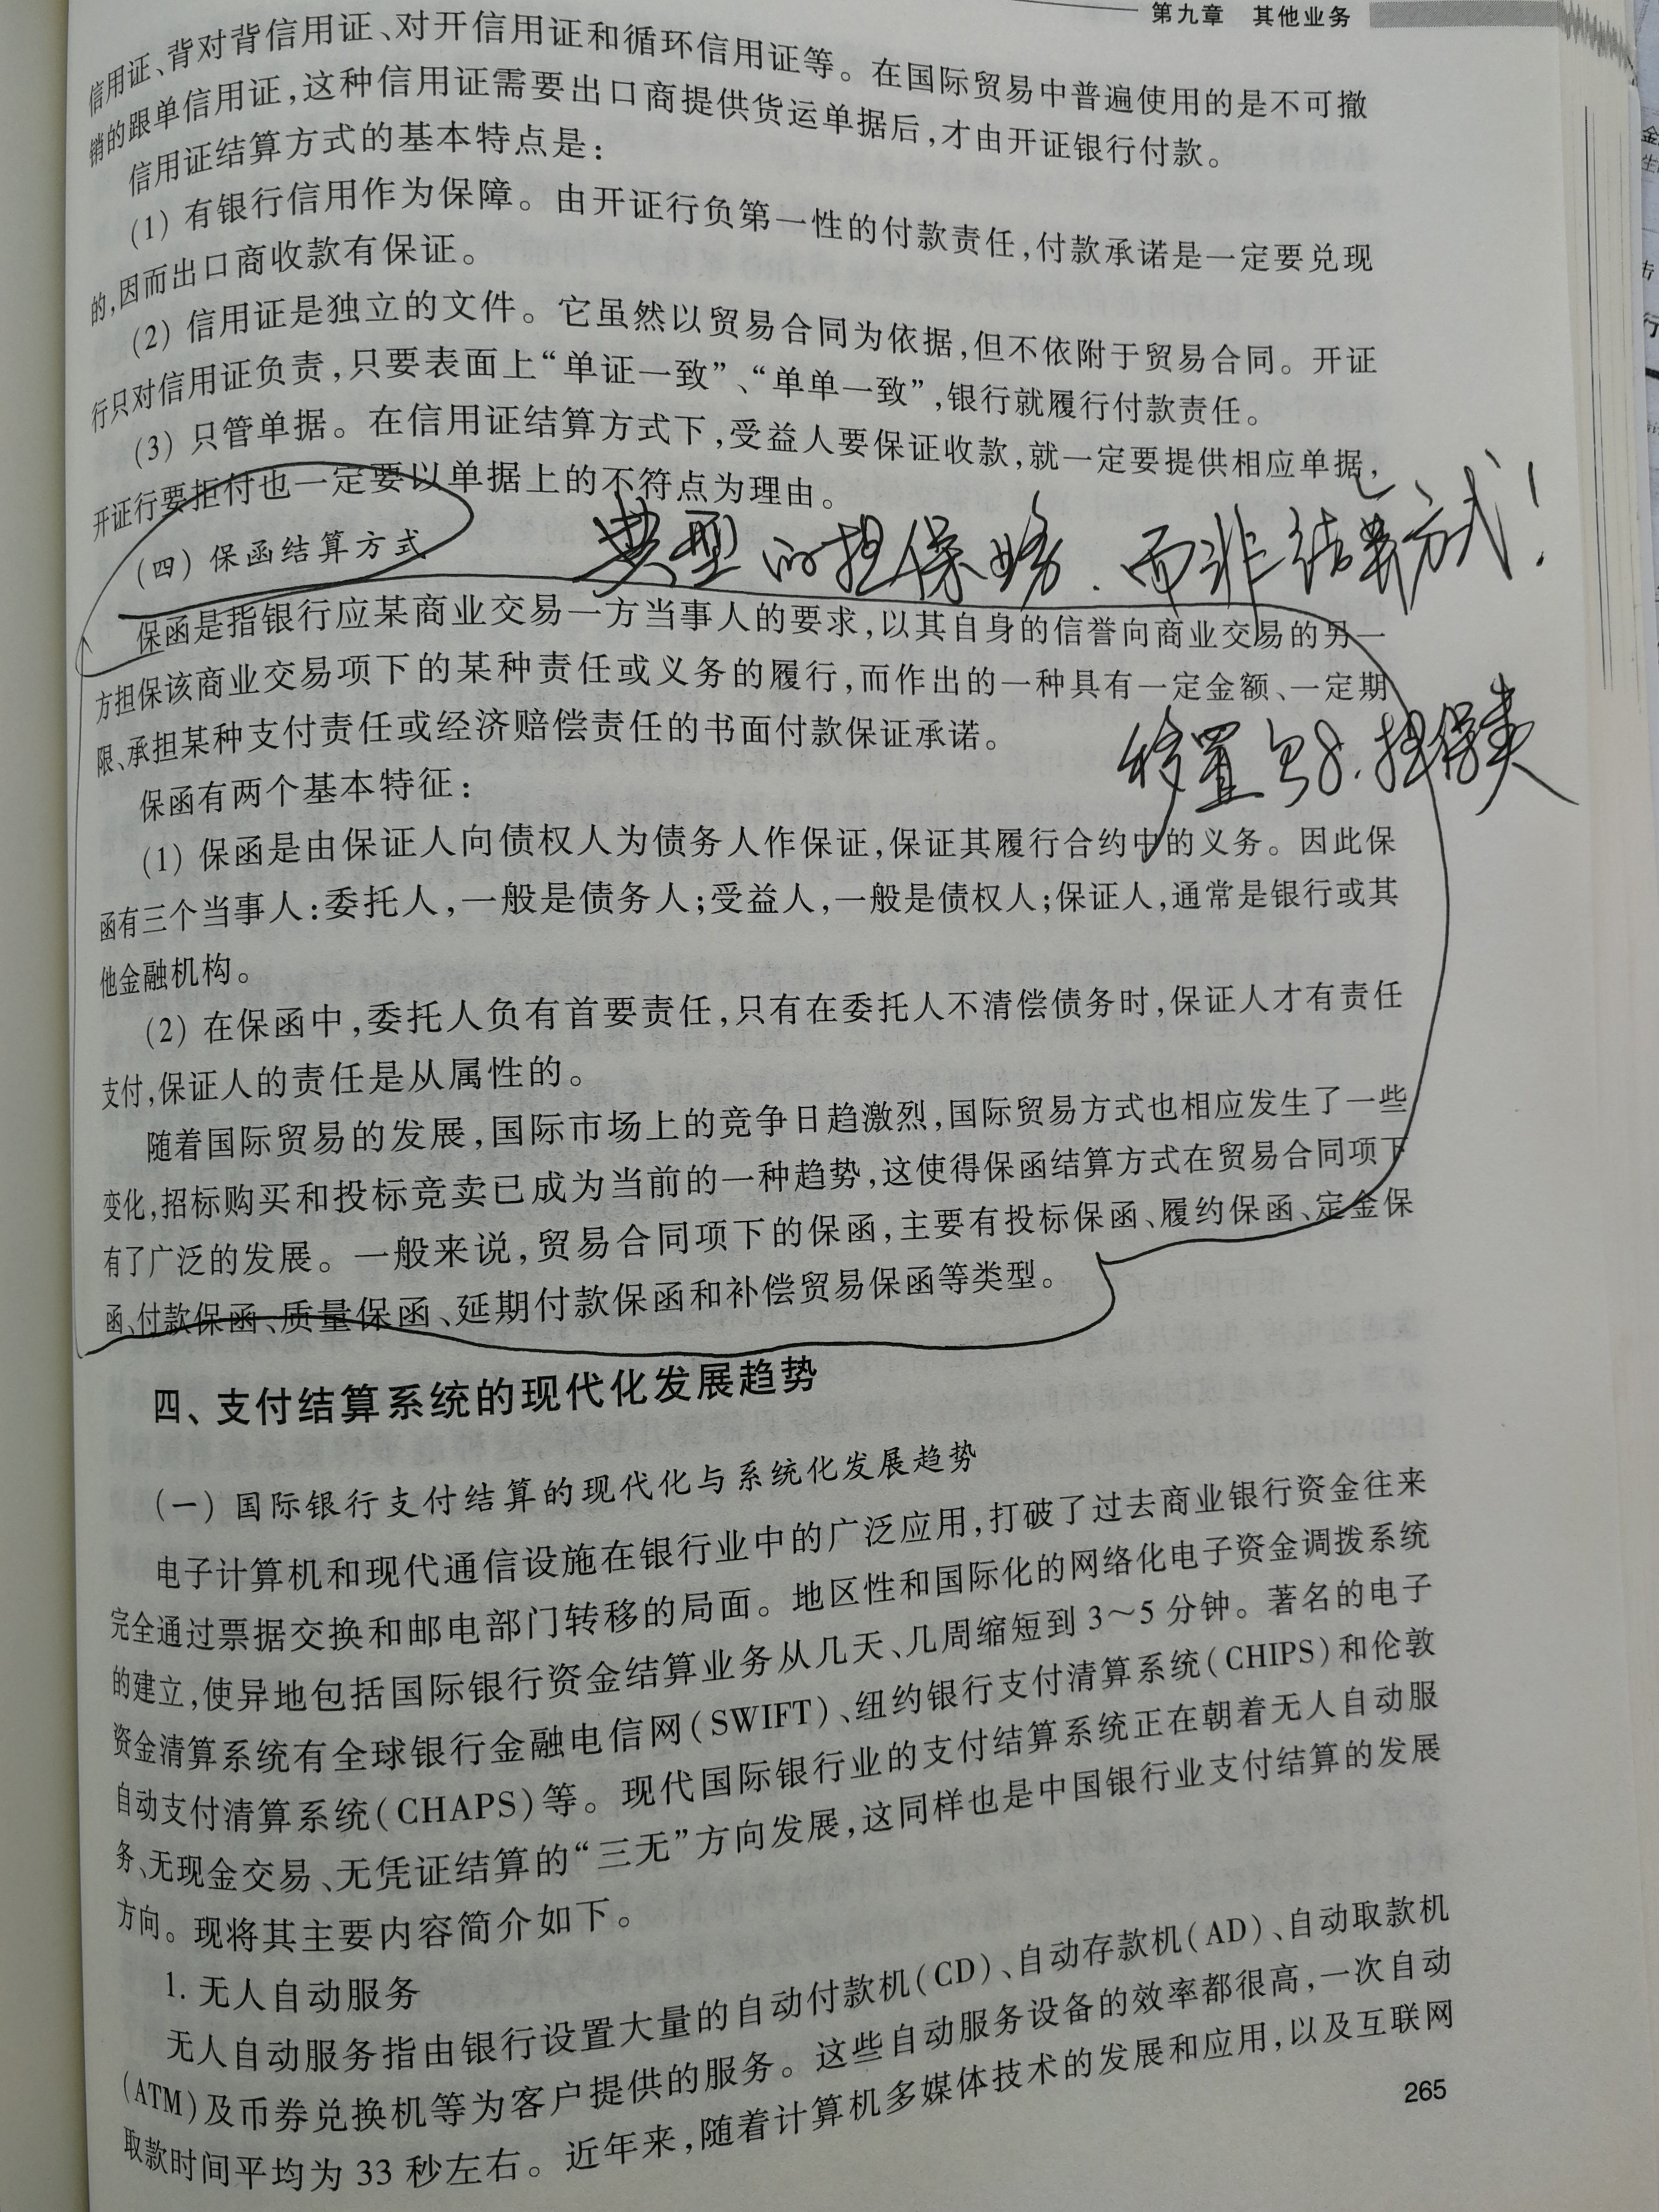 第九章　其他业务
信用证、背对背信用证、对开信用证和循环信用证等。在国际贸易中普遍使用的是不可撤
销的跟单信用证,这种信用证需要出口商提供货运单据后,才由开证银行付款。
信用证结算方式的基本特点是:
(1) 有银行信用作为保障。由开证行负第一性的付款责任,付款承诺是一定要兑现
的,因而出口商收款有保证。
(2) 信用证是独立的文件。它虽然以贸易合同为依据,但不依附于贸易合同。开证
行只对信用证负责,只要表面上“单证一致”、“单单一致”,银行就履行付款责任。
(3) 只管单据。在信用证结算方式下,受益人要保证收款,就一定要提供相应单据,
开证行要拒付也一定要以单据上的不符点为理由。
(四) 保函结算方式
典型的担保 而非结算方式!
保函是指银行应某商业交易一方当事人的要求,以其自身的信誉向商业交易的另一
方担保该商业交易项下的某种责任或义务的履行,而作出的一种具有一定金额、一定期
限、承担某种支付责任或经济赔偿责任的书面付款保证承诺。
移置 担保类
保函有两个基本特征:
(1) 保函是由保证人向债权人为债务人作保证,保证其履行合约中的义务。因此保
函有三个当事人:委托人,一般是债务人;受益人,一般是债权人;保证人,通常是银行或其
他金融机构。
(2) 在保函中,委托人负有首要责任,只有在委托人不清偿债务时,保证人才有责任
支付,保证人的责任是从属性的。
随着国际贸易的发展,国际市场上的竞争日趋激烈,国际贸易方式也相应发生了一些
变化,招标购买和投标竞卖已成为当前的一种趋势,这使得保函结算方式在贸易合同项下
有了广泛的发展。一般来说,贸易合同项下的保函,主要有投标保函、履约保函、定金保
函、付款保函、质量保函、延期付款保函和补偿贸易保函等类型。
四、支付结算系统的现代化发展趋势
(一) 国际银行支付结算的现代化与系统化发展趋势
电子计算机和现代通信设施在银行业中的广泛应用,打破了过去商业银行资金往来
完全通过票据交换和邮电部门转移的局面。地区性和国际化的网络化电子资金调拨系统
的建立,使异地包括国际银行资金结算业务从几天、几周缩短到 3～5 分钟。著名的电子
资金清算系统有全球银行金融电信网(SWIFT)、纽约银行支付清算系统(CHIPS)和伦敦
自动支付清算系统(CHAPS)等。现代国际银行业的支付结算系统正在朝着无人自动服
务、无现金交易、无凭证结算的“三无”方向发展,这同样也是中国银行业支付结算的发展
方向。现将其主要内容简介如下。
1. 无人自动服务
无人自动服务指由银行设置大量的自动付款机(CD)、自动存款机(AD)、自动取款机
(ATM)及币券兑换机等为客户提供的服务。这些自动服务设备的效率都很高,一次自动
取款时间平均为 33 秒左右。近年来,随着计算机多媒体技术的发展和应用,以及互联网
265